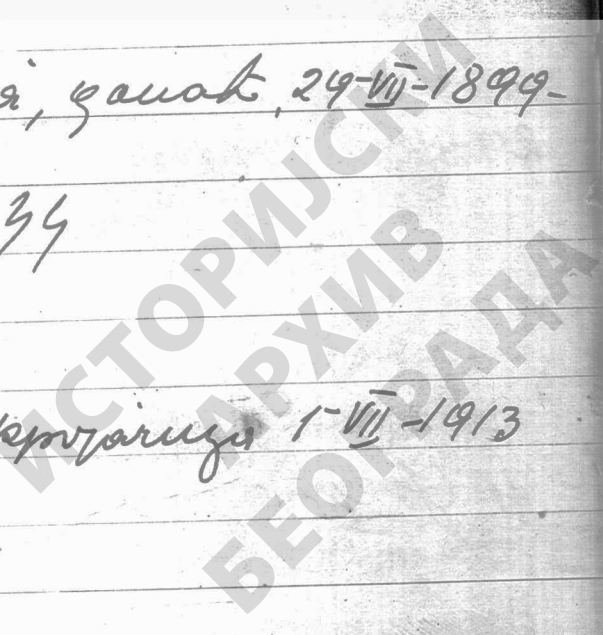 ђак, 24-VII-1899-
34
кројачица 1-VII-1913
ИСТОРИЈСКИ
АРХИВ
БЕОГРАДА